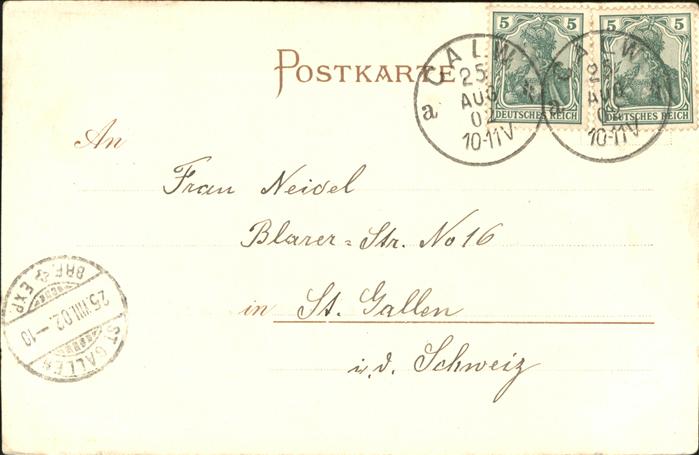 POSTKARTE
5 5
5 5
DEUTSCHES REICH
DEUTSCHES REICH
CALW
25
AUG
02
10-11V
a
CALW
25
AUG
02
10-11V
a
An
Frau Neidel
Blarer=Str. No 16
in St. Gallen
i. d. Schweiz
BRF. EXP.
25.VIII.02.–10
ST. GALLEN